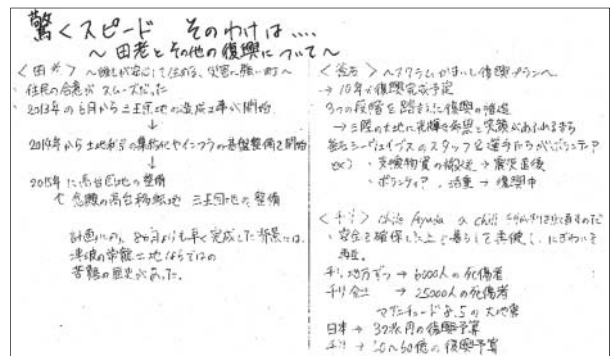 驚くスピード そのわけは....
～田老とその他の復興について～
<田老> ～誰もが安心して住める、災害に強い町～
・住民の合意がスムーズだった
2013年の6月から三王団地の造成工事が開始
↓
2014年から土地利用の集約化やインフラの基盤整備を開始
↓
2015年に高台団地の整備
念願の高台移転地 三王団地の整備
計画よりも早く完成した背景には、
津波の常襲土地ならではの
苦難の歴史があった。
<釜石> ～スクラムかまいし復興プラン～
→10年で復興完成予定
3つの段階を踏まえた復興の推進
→三陸の大地に光輝き希望と笑顔があふれるまち
釜石シーウェイブスのスタッフや選手たちがボランティア
ex) ・支援物資の搬送 → 震災直後
・ボランティア、活動 → 復興中
<チリ>
・安全を確保した上で暮らしを再建し、にぎわいを
再生。
→ 6000人の死傷者
チリ全土 → 25000人の死傷者
マグニチュード8.5の大地震
日本 → 32兆円の復興予算
チリ → の復興予算